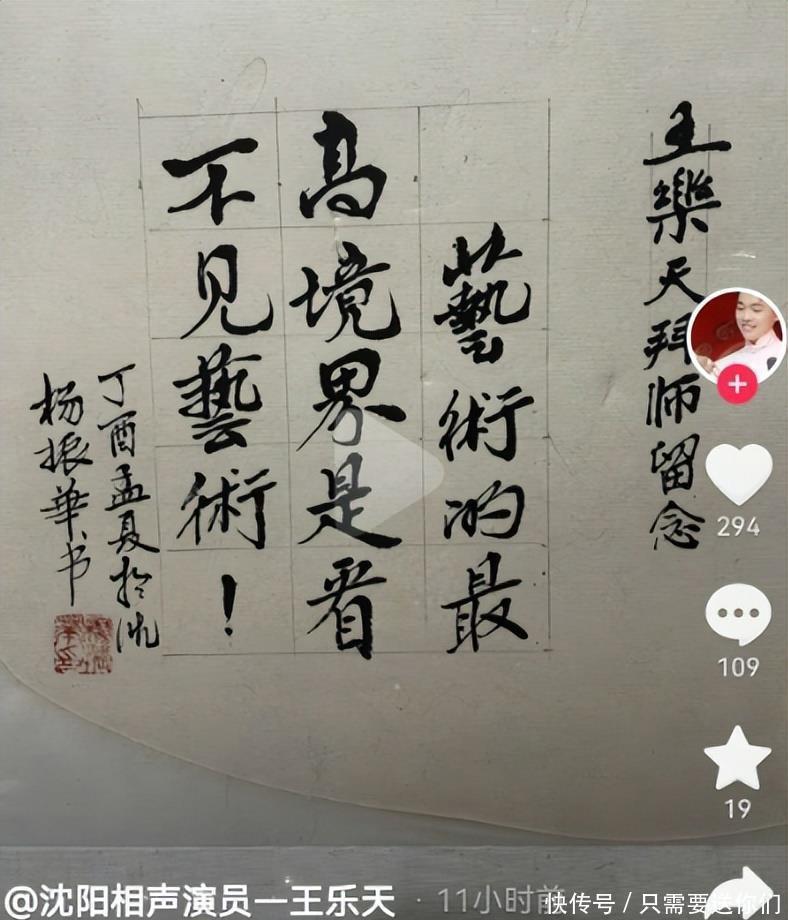 王樂天拜师留念
藝術的最
高境界是看
不见藝術！
丁酉孟夏於沈
杨振華书
294
109
19
@沈阳相声演员一王乐天 · 11小时前
快传号 / 只需要送你们